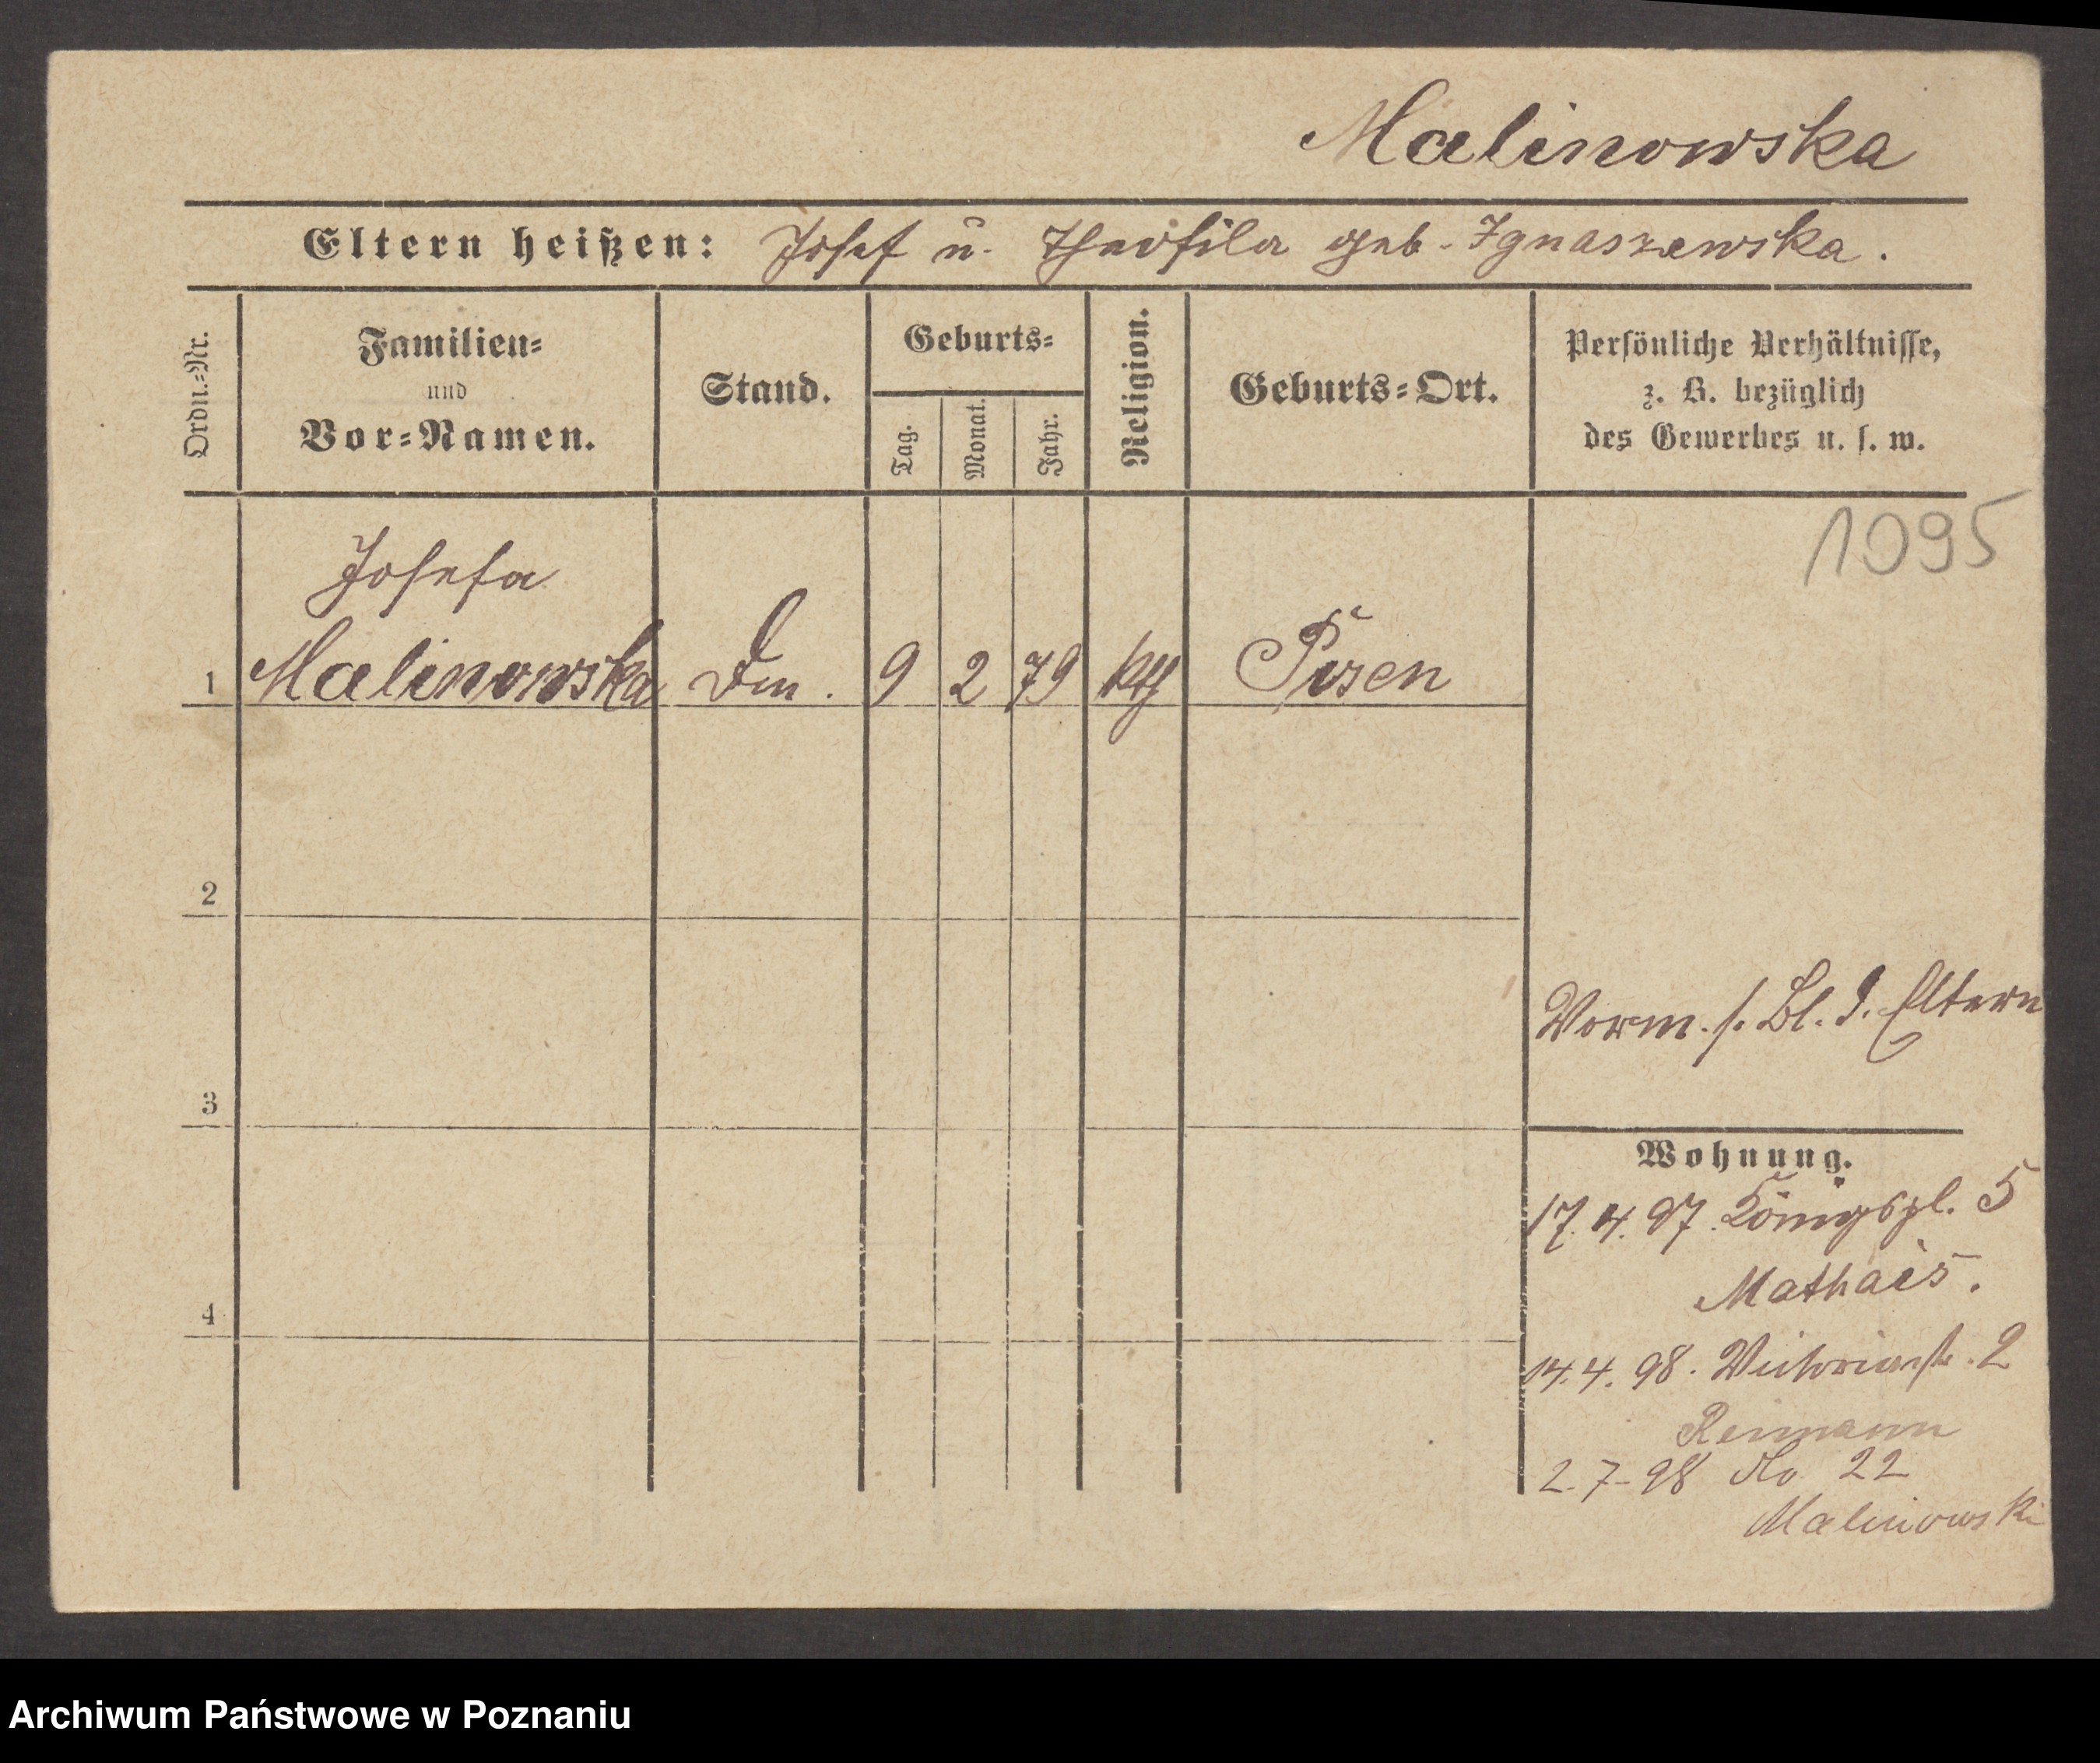 Malinowska
Eltern heißen: Josef u. Theofila geb. Ignaszewska.
Ordn.=Nr.
Familien=
und
Vor=Namen.
Stand.
Geburts=
Tag.
Monat.
Jahr.
Religion.
Geburts=Ort.
Persönliche Verhältnisse,
z. B. bezüglich
des Gewerbes u. s. w.
1095
Josefa
1 Malinowska 9 2 79 kth Posen
2
Vorm. s. Bl. d. Eltern
3
Wohnung.
17.4.97. Königspl. 5
Mathais.
4
14.4.98. Victoriastr. 2
Reimann
2.7-98 No 22
Malinowski
Archiwum Państwowe w Poznaniu